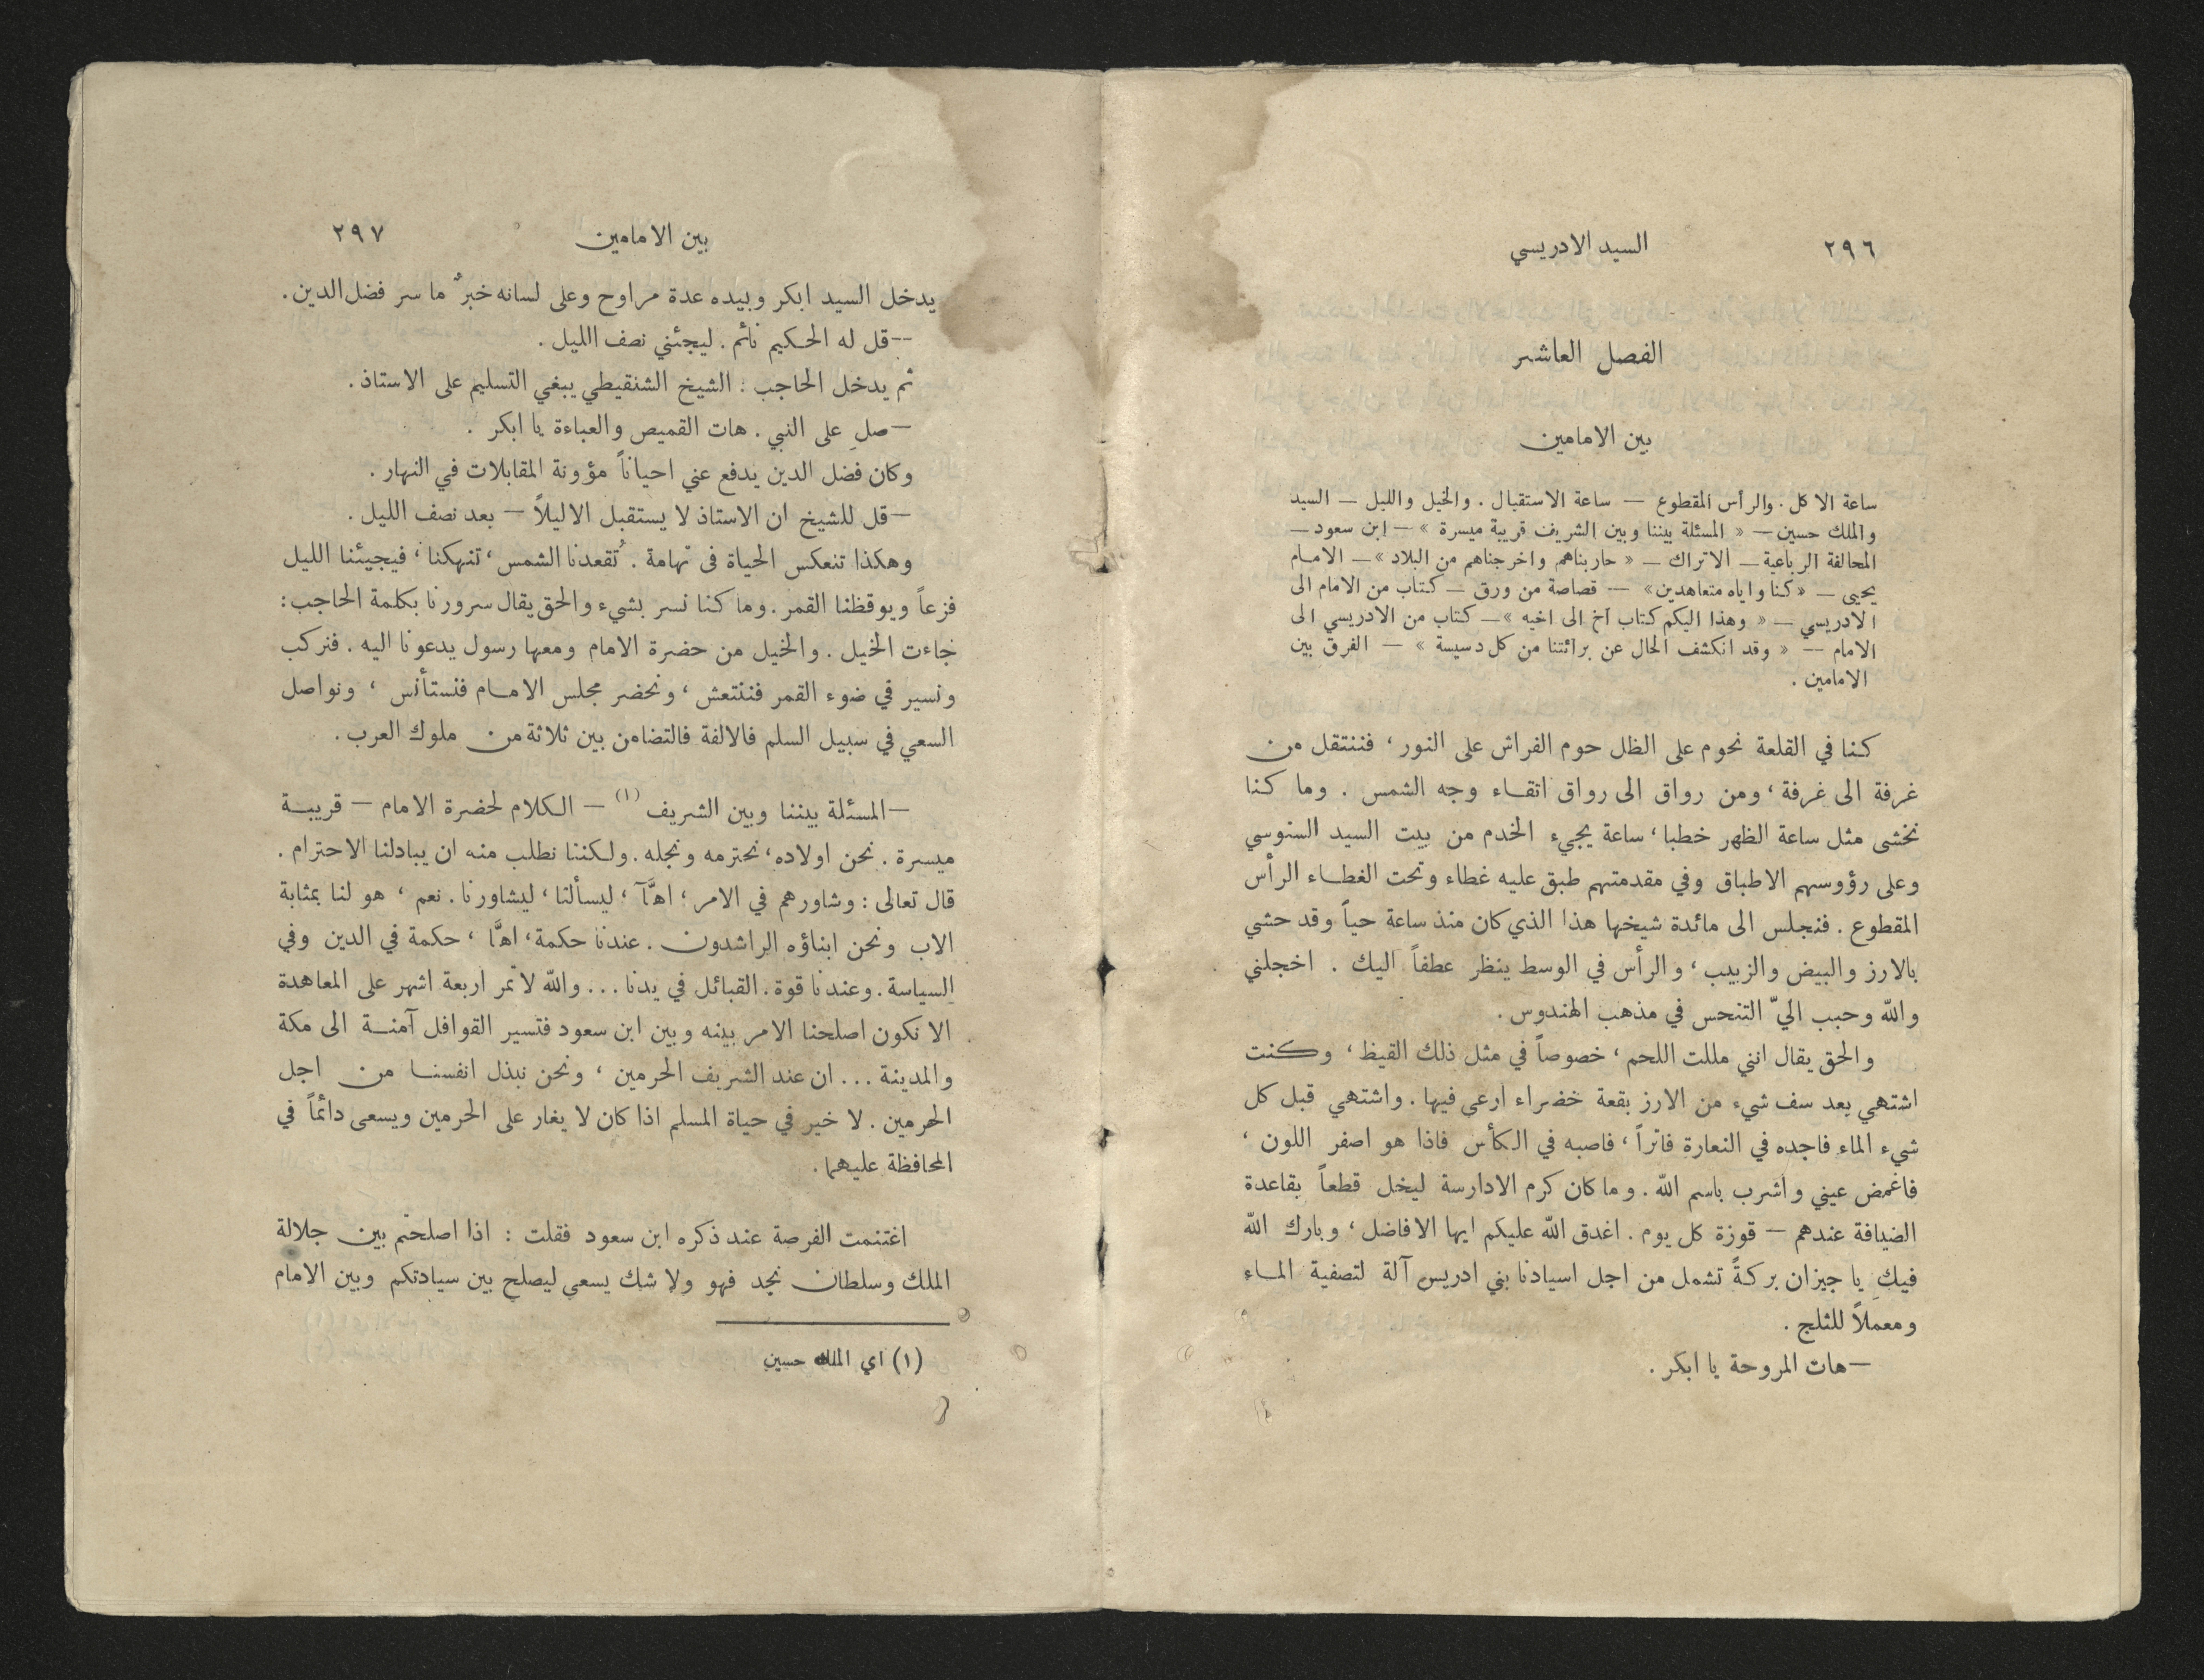 ٢٩٦
السيد الادريسي
الفصل العاشر
بين الامامين
ساعة الاكل. والرأس المقطوع — ساعة الاستقبال. والخيل والليل — السيد
والملك حسين — « المسئلة بيننا وبين الشريف قريبة ميسرة » — ابن سعود —
المحالفة الرباعية — الاتراك — « حاربناهم واخرجناهم من البلاد » — الامام
يحيى — « كنا واياه متعاهدين » — قصاصة من ورق — كتاب من الامام الى
الادريسي — « وهذا اليكم كتاب اخ الى اخيه » — كتاب من الادريسي الى
الامام — « وقد انكشف الحال عن برائتنا من كل دسيسة » — الفرق بين
الامامين .
كنا في القلعة نحوم على الظل حوم الفراش على النور ، فننتقل من
غرفة الى غرفة ، ومن رواق الى رواق اتقاء وجه الشمس . وما كنا
نخشى مثل ساعة الظهر خطبا ، ساعة يجيء الخدم من بيت السيد السنوسي
وعلى رؤوسهم الاطباق وفي مقدمتهم طبق عليه غطاء وتحت الغطاء الرأس
المقطوع . فنجلس الى مائدة شيخها هذا الذي كان منذ ساعة حياً وقد حشي
بالارز والبيض والزبيب ، والرأس في الوسط ينظر عطفاً اليك . اخجلني
والله وحبب اليّ التنحس في مذهب الهندوس .
والحق يقال انني مللت اللحم ، خصوصاً في مثل ذلك القيظ ، وكنت
اشتهي بعد سف شيء من الارز بقعة خضراء ارعى فيها . واشتهي قبل كل
شيء الماء فاجده في النعارة فاتراً ، فاصبه في الكأس فاذا هو اصفر اللون ،
فاغمض عيني واشرب باسم الله . وما كان كرم الادارسة ليخل قطعاً بقاعدة
الضيافة عندهم — قوزة كل يوم . اغدق الله عليكم ايها الافاضل ، وبارك الله
فيكِ يا جيزان بركةً تشمل من اجل اسيادنا بني ادريس آلة لتصفية الماء
ومعملاً للثلج .
— هات المروحة يا ابكر .
بين الامامين
٢٩٧
يدخل السيد ابكر وبيده عدة مراوح وعلى لسانه خبرٌ ما سر فضل الدين .
— قل له الحكيم نائم . ليجئني نصف الليل .
ثم يدخل الحاجب : الشيخ الشنقيطي يبغي التسليم على الاستاذ .
— صلِ على النبي . هات القميص والعباءة يا ابكر .
وكان فضل الدين يدفع عني احياناً مؤونة المقابلات في النهار .
— قل للشيخ ان الاستاذ لا يستقبل الا ليلاً — بعد نصف الليل .
وهكذا تنعكس الحياة في تهامة . تُقعدنا الشمس ، تنهكنا ، فيجيئنا الليل
فزعاً ويوقظنا القمر . وما كنا نسر بشيء والحق يقال سرورنا بكلمة الحاجب :
جاءت الخيل . والخيل من حضرة الامام ومعها رسول يدعونا اليه . فنركب
ونسير في ضوء القمر فننتعش ، ونحضر مجلس الامام فنستأنس ، ونواصل
السعي في سبيل السلم فالالفة فالتضامن بين ثلاثة من ملوك العرب .
— المسئلة بيننا وبين الشريف (١) — الكلام لحضرة الامام — قريبة
ميسرة . نحن اولاده ، نحترمه ونجله . ولكننا نطلب منه ان يبادلنا الاحترام .
قال تعالى : وشاورهم في الامر ؛ اهَّآ ، ليسألنا ، ليشاورنا . نعم ، هو لنا بمثابة
الاب ونحن ابناؤه الراشدون . عندنا حكمة ، اهَّا ، حكمة في الدين وفي
السياسة . وعندنا قوة . القبائل في يدنا ... والله لا تمر اربعة اشهر على المعاهدة
الا نكون اصلحنا الامر بينه وبين ابن سعود فتسير القوافل آمنة الى مكة
والمدينة ... ان عند الشريف الحرمين ، ونحن نبذل انفسنا من اجل
الحرمين . لا خير في حياة المسلم اذا كان لا يغار على الحرمين ويسعى دائماً في
المحافظة عليهما .
اغتنمت الفرصة عند ذكره ابن سعود فقلت : اذا اصلحتم بين جلالة
الملك وسلطان نجد فهو ولا شك يسعى ليصلح بين سيادتكم وبين الامام
(١) اي الملك حسين